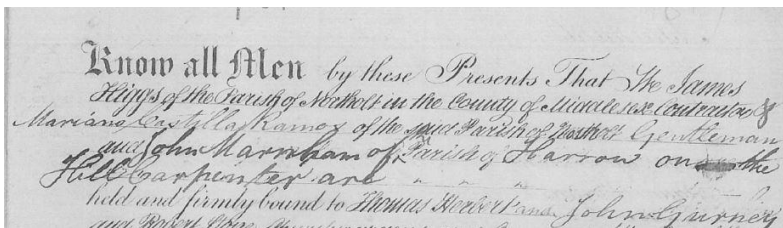 Know all Men by these Presents That We James
of the Parish of Northolt in the County of Middlesex Contractor &
Mariano Castilla Ramos of the said Parish of Northolt Gentleman
and John Marnham of Parish of Harrow on the
Hill Carpenter are " " "
held and firmly bound to Thomas Herbert and John Gurney
and Robert